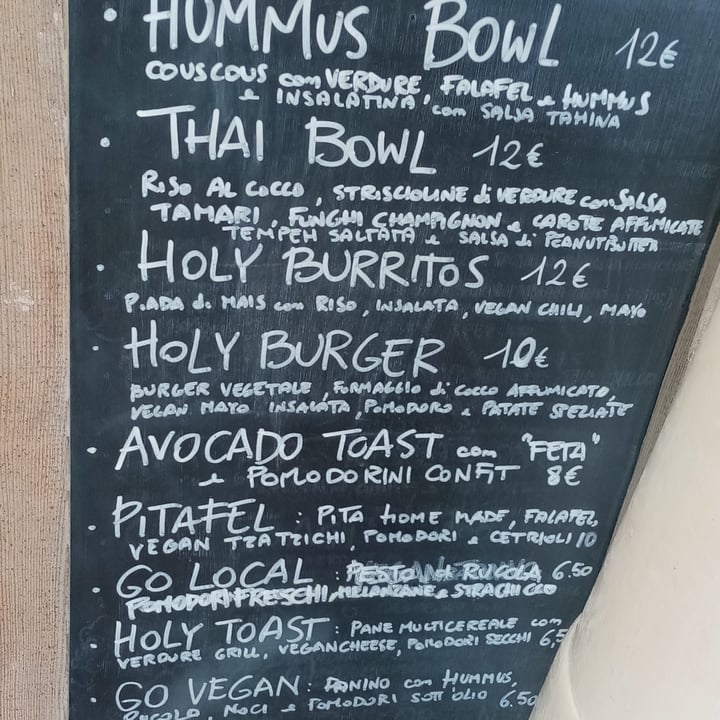 • HUMMUS BOWL 12€
COUSCOUS con VERDURE, FALAFEL e HUMMUS
e INSALATINA, con SALSA TAHINA
• THAI BOWL 12€
RISO AL COCCO, STRISCIOLINE di VERDURE con SALSA
TAMARI, FUNGHI CHAMPIGNON e CAROTE AFFUMICATE
TEMPEH SALTATA e SALSA di PEANUTBUTTER
• HOLY BURRITOS 12€
PIADA di MAIS con RISO, INSALATA, VEGAN CHILI, MAYO
• HOLY BURGER 10€
BURGER VEGETALE, FORMAGGIO di COCCO AFFUMICATO,
VEGAN MAYO INSALATA, POMODORO e PATATE SPEZIATE
• AVOCADO TOAST con "FETA"
e POMODORINI CONFIT 8€
• PITAFEL : PITA HOME MADE, FALAFEL,
VEGAN TZATZICHI, POMODORI e CETRIOLI 10
• GO LOCAL : PESTO di RUCOLA 6.50
POMODORI FRESCHI, MELANZANE e
• HOLY TOAST : PANE MULTICEREALE con
VERDURE GRILL, VEGANCHEESE, POMODORI SECCHI 6,5
• GO VEGAN : PANINO con HUMMUS,
RUCOLA, NOCI e POMODORI SOTT'OLIO 6.50